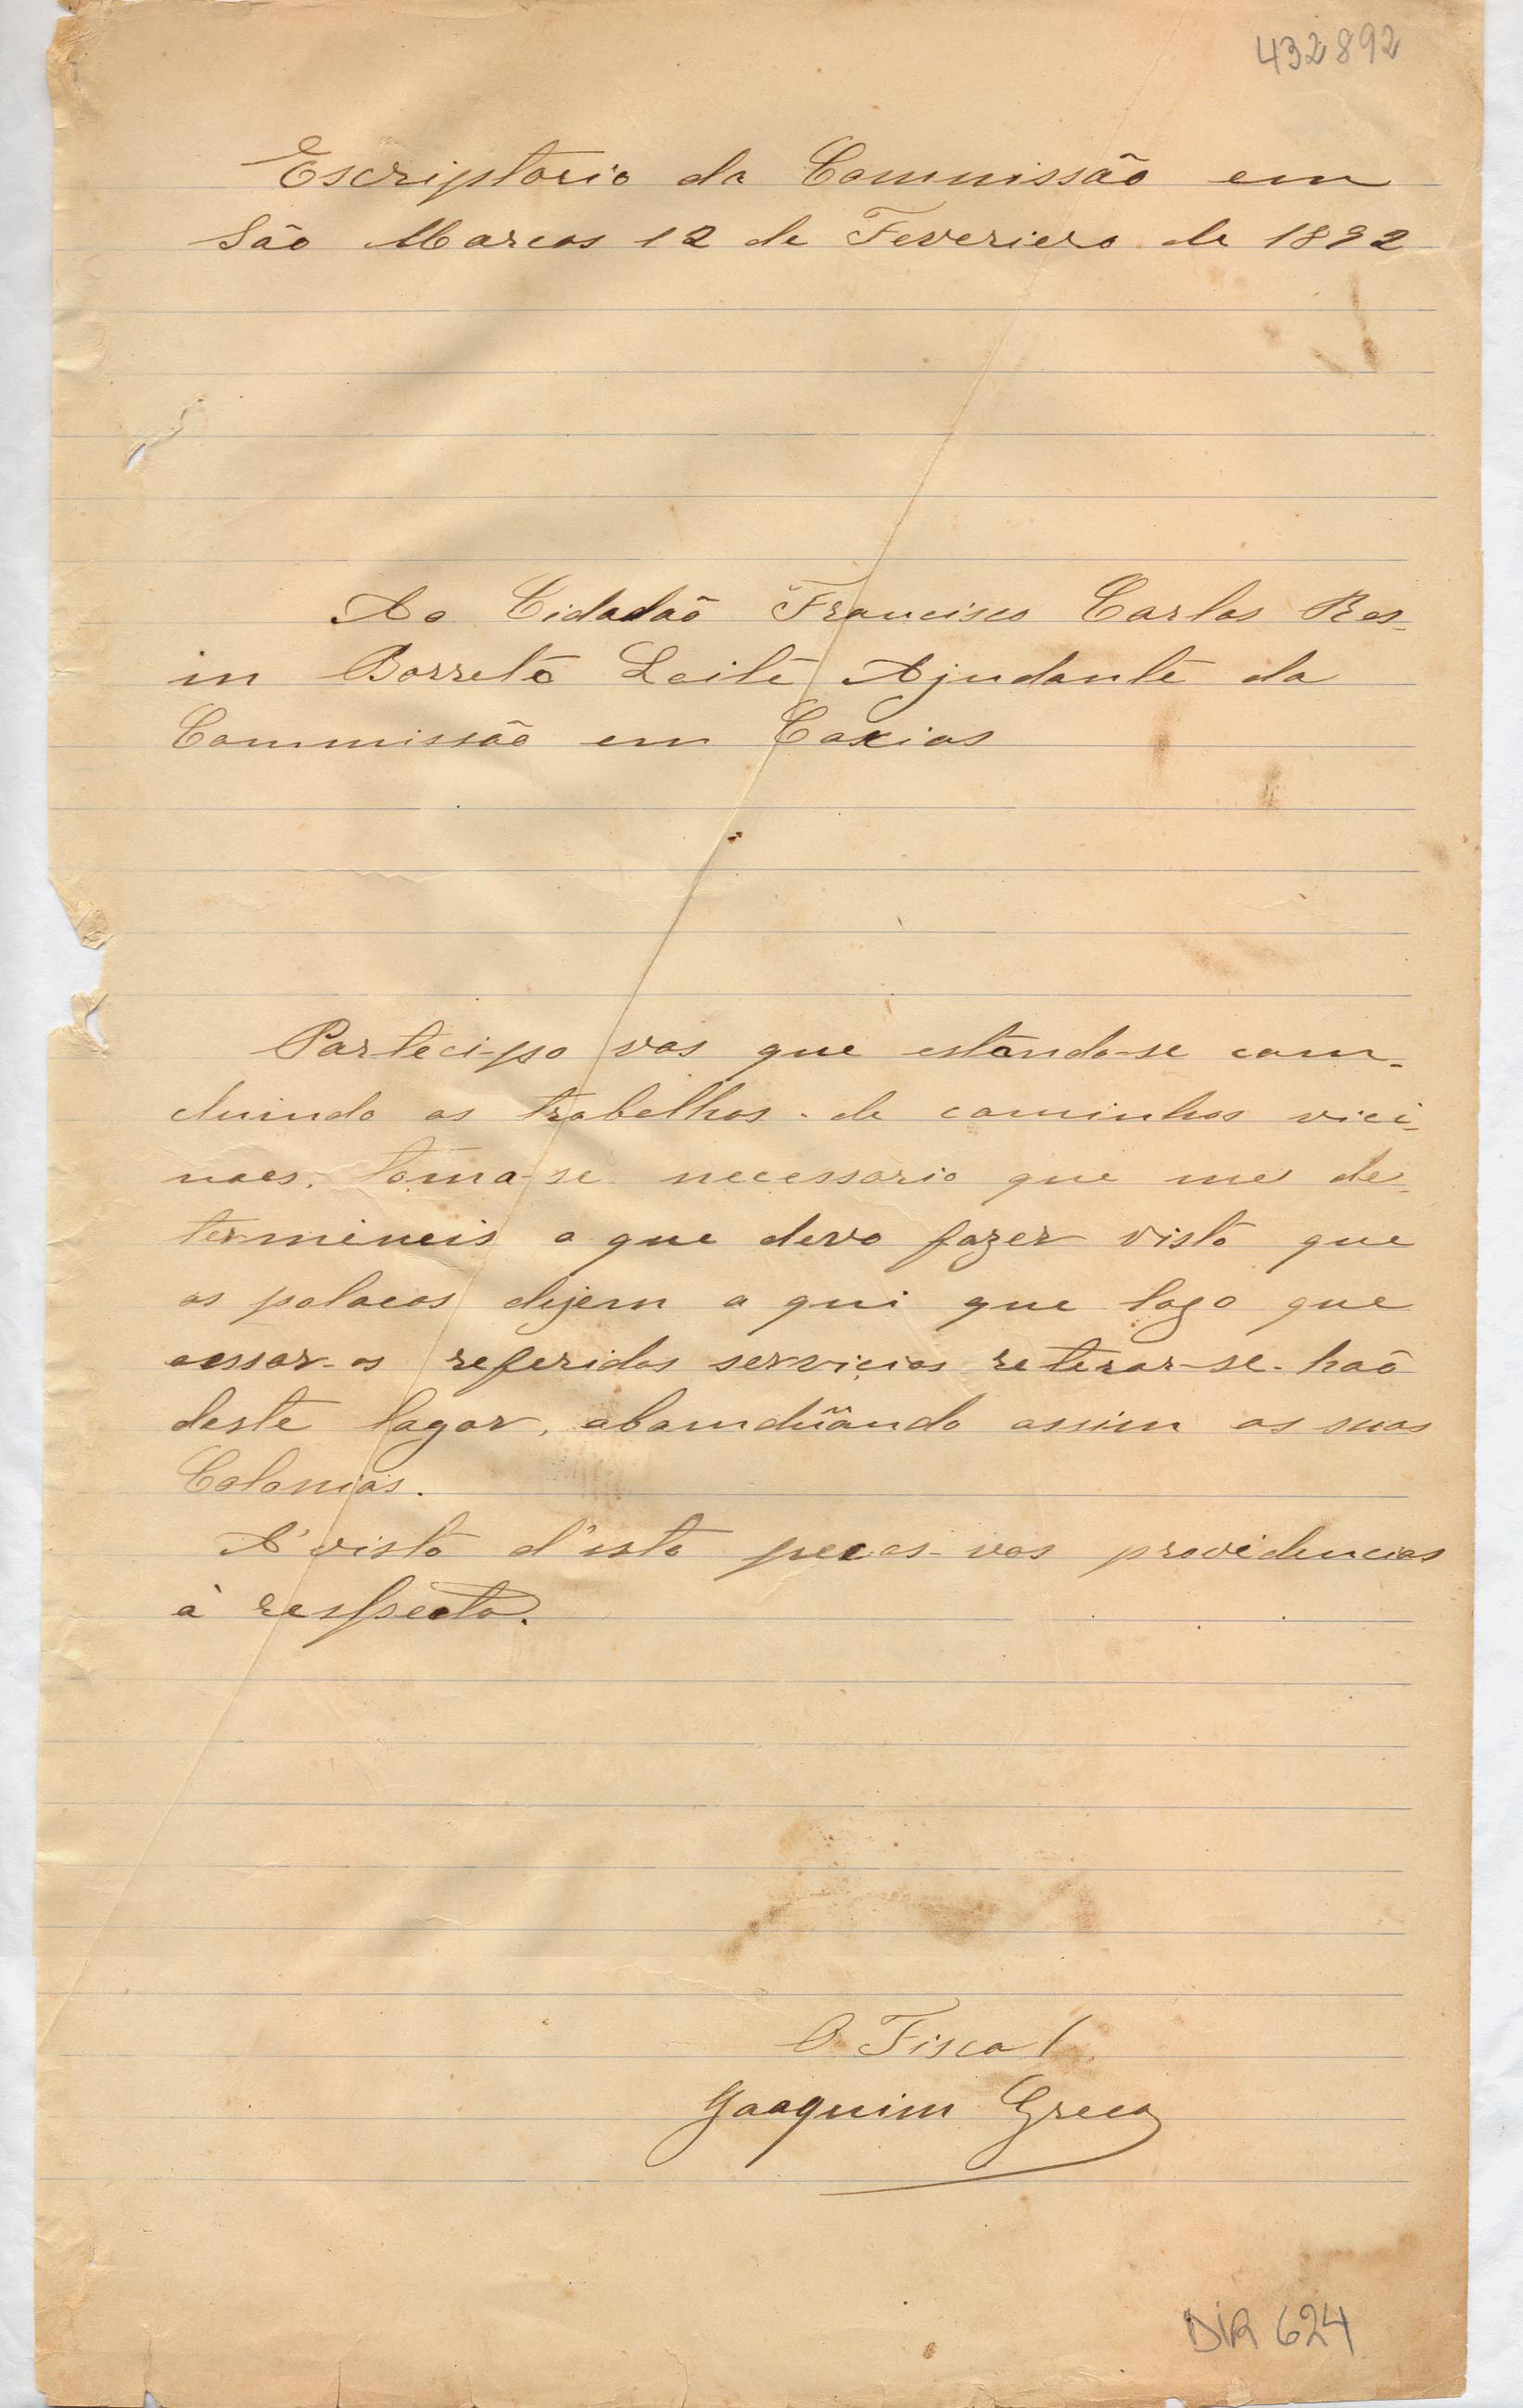 432892
Escriptorio da Commissão em
São Marcos 12 de Feveriero de 1892
Ao Cidadaõ Francisco Carlos Res-
in Barreto Leite Ajudante da
Commissão em Caxias
Parteci-po vos que estando-se com-
cluindo os trabelhos de caminhos vici-
naes, torna-se necessario que me de-
termineis o que devo fazer visto que
os polacos dizem a qui que logo que
cessar-os referidos serviços reterar-se-haõ
deste logar, abandüando assim as suas
Colonias.
A' vista d'isto peços-vos providencias
à respeito.
O Fiscal
Joaquim Greco
DIR 624